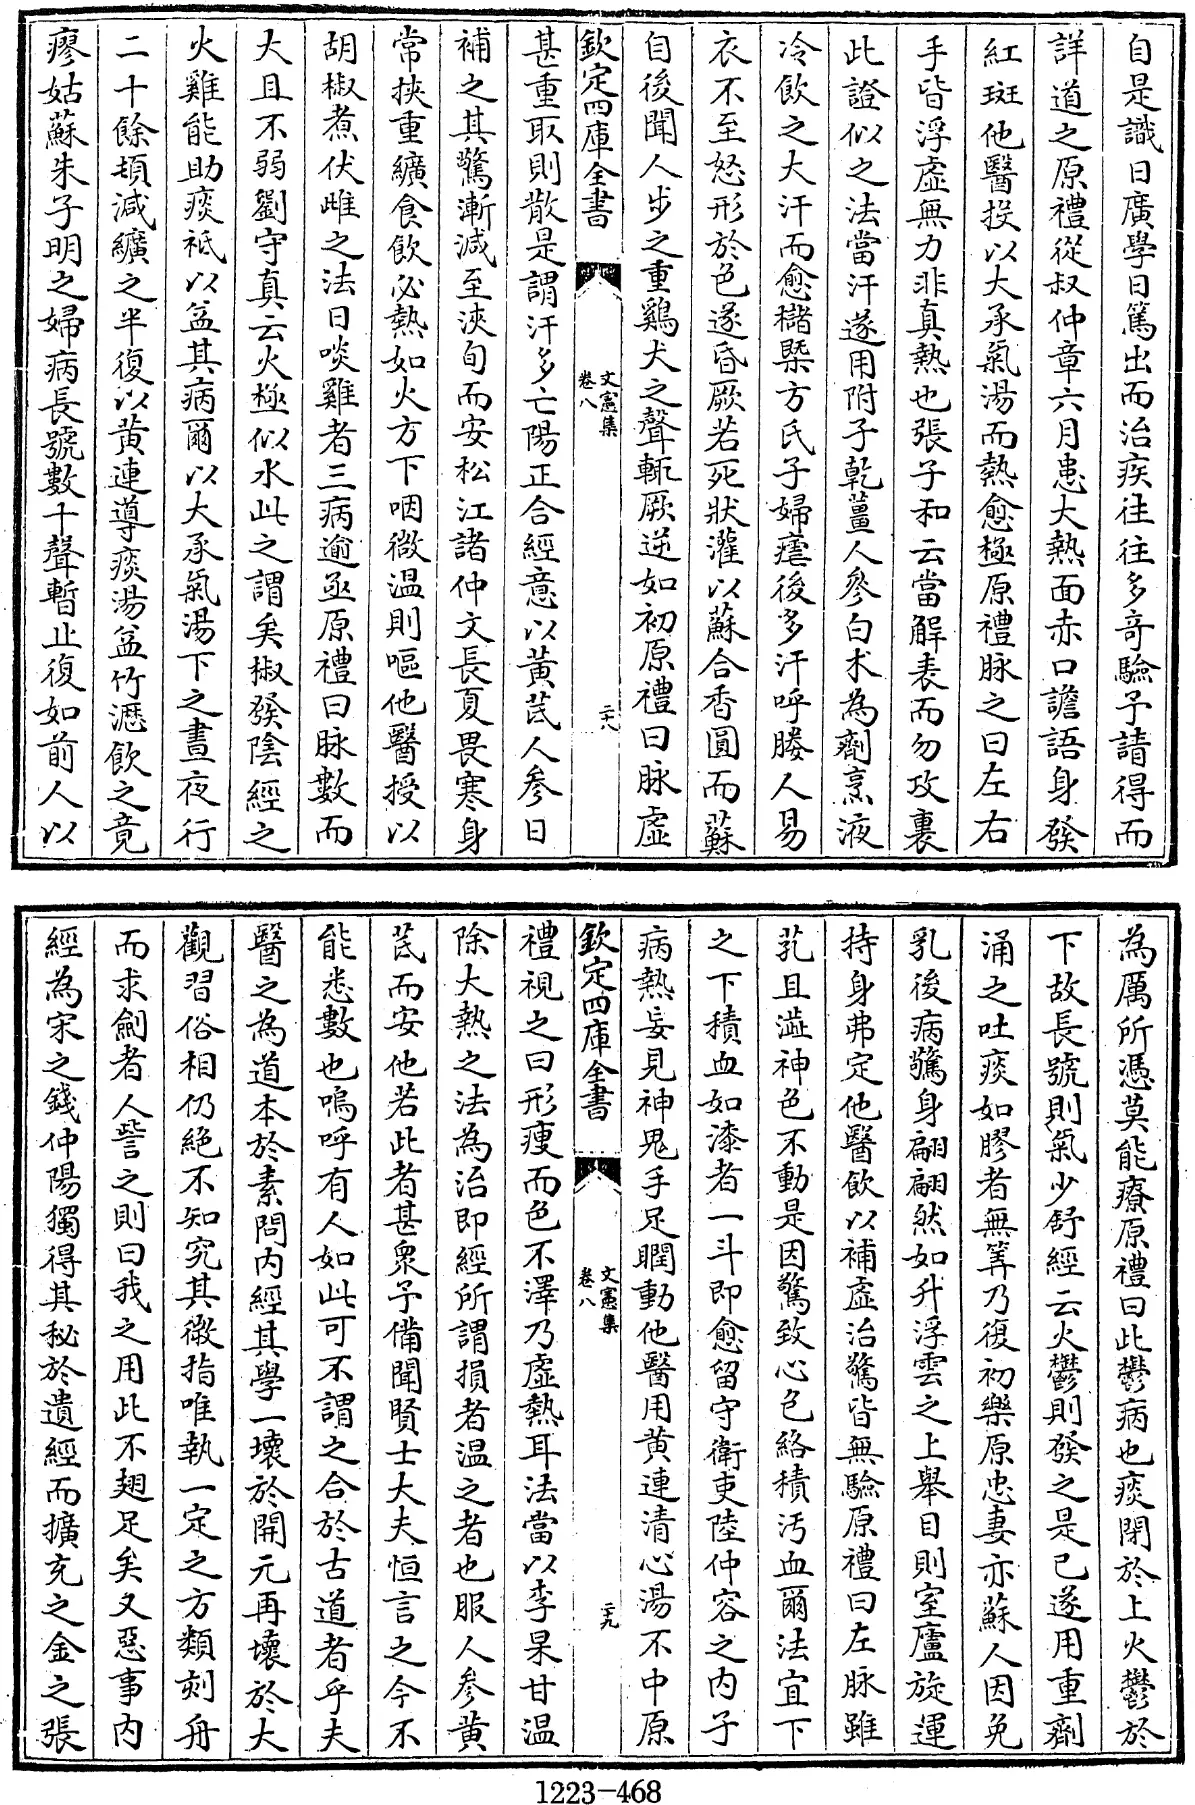 自是識日廣學日篤出而治疾往往多奇驗予請得而
詳道之原禮從叔仲章六月患大熱面赤口譫語身發
紅斑他醫投以大承氣湯而熱愈極原禮脉之曰左右
手皆浮虛無力非真熱也張子和云當解表而勿攻裏
此證似之法當汗遂用附子乾薑人參白朮為劑烹液
冷飲之大汗而愈櫧槩方氏子婦瘧後多汗呼媵人易
衣不至怒形於色遂昏厥若死狀灌以蘇合香圓而蘇
自後聞人步之重鷄犬之聲輒厥逆如初原禮曰脉虛
欽定四庫全書
文憲集
卷八
二十八
甚重取則散是謂汗多亡陽正合經意以黃芪人參日
補之其驚漸減至浹旬而安松江諸仲文長夏畏寒身
常挾重纊食飲必熱如火方下咽微温則嘔他醫授以
胡椒煮伏雌之法日啖雞者三病逾亟原禮曰脉數而
大且不弱劉守真云火極似水此之謂矣椒發陰經之
火雞能助痰祗以益其病爾以大承氣湯下之晝夜行
二十餘頓減纊之半復以黃連導痰湯益竹瀝飲之竟
瘳姑蘇朱子明之婦病長號數十聲暫止復如前人以
為厲所憑莫能療原禮曰此鬱病也痰閉於上火鬱於
下故長號則氣少舒經云火鬱則發之是已遂用重劑
涌之吐痰如膠者無筭乃復初樂原忠妻亦蘇人因免
乳後病驚身翩翩然如升浮雲之上舉目則室廬旋運
持身弗定他醫飲以補虛治驚皆無驗原禮曰左脉雖
芤且澁神色不動是因驚致心包絡積汚血爾法宜下
之下積血如漆者一斗即愈留守衛吏陸仲容之內子
病熱妄見神鬼手足瞤動他醫用黃連清心湯不中原
欽定四庫全書
文憲集
卷八
二十九
禮視之曰形瘦而色不澤乃虛熱耳法當以李杲甘温
除大熱之法為治即經所謂損者温之者也服人參黃
芪而安他若此者甚衆予備聞賢士大夫恒言之今不
能悉數也嗚呼有人如此可不謂之合於古道者乎夫
醫之為道本於素問内經其學一壞於開元再壞於大
觀習俗相仍絶不知究其微指唯執一定之方類刻舟
而求劍者人詧之則曰我之用此不翅足矣又惡事內
經為宋之錢仲陽獨得其秘於遺經而擴充之金之張
1223-468